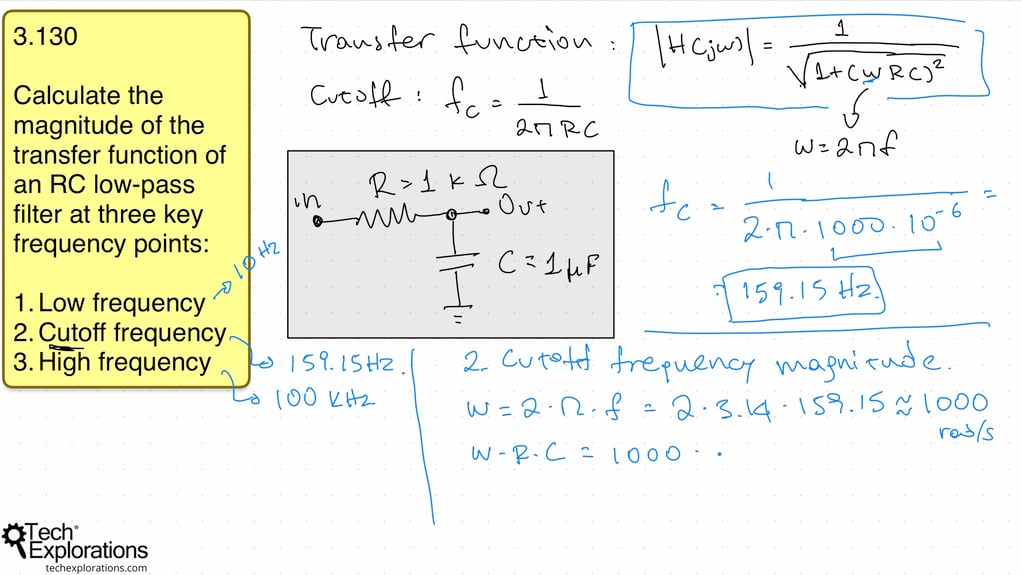 3.130
Calculate the
magnitude of the
transfer function of
an RC low-pass
filter at three key
frequency points:
1. Low frequency
2. Cutoff frequency
3. High frequency
10Hz
159.15Hz.
100 KHz
Transfer function :
|H(jw)| = 1 / √(1+(wRC)²)
w=2πf
Cutoff : fc = 1 / 2πRC
in
R > 1 k Ω
Out
C = 1μF
fc = 1 / 2·π·1000·10⁻⁶ =
159.15 Hz.
2. Cutoff frequency magnitude.
w = 2·π·f = 2·3.14·159.15 ≈ 1000
rad/s
w·R·C = 1000 · .
Tech®
Explorations
techexplorations.com